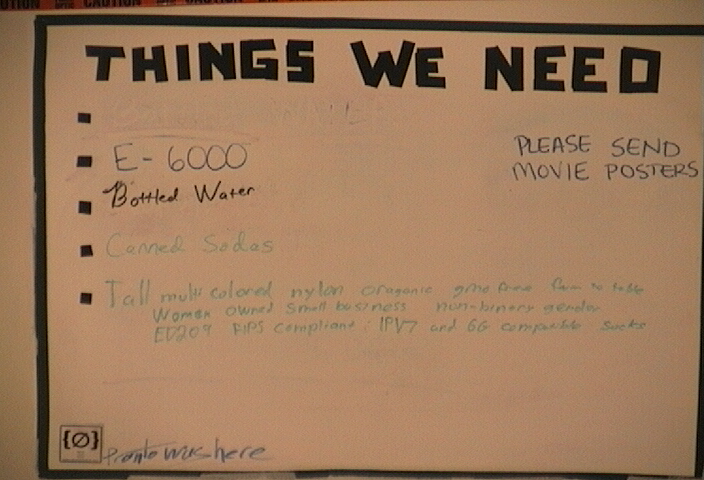 CAUTION CAUTION
THINGS WE NEED
E-6000
Bottled Water
Canned Sodas
Tall multi colored nylon oraganic gmo free farm to table
Woman owned small business non-binary gender
ED209 FIPS compliant : IPV7 and 6G compatible socks
PLEASE SEND
MOVIE POSTERS
{Ø}
Pronto was here